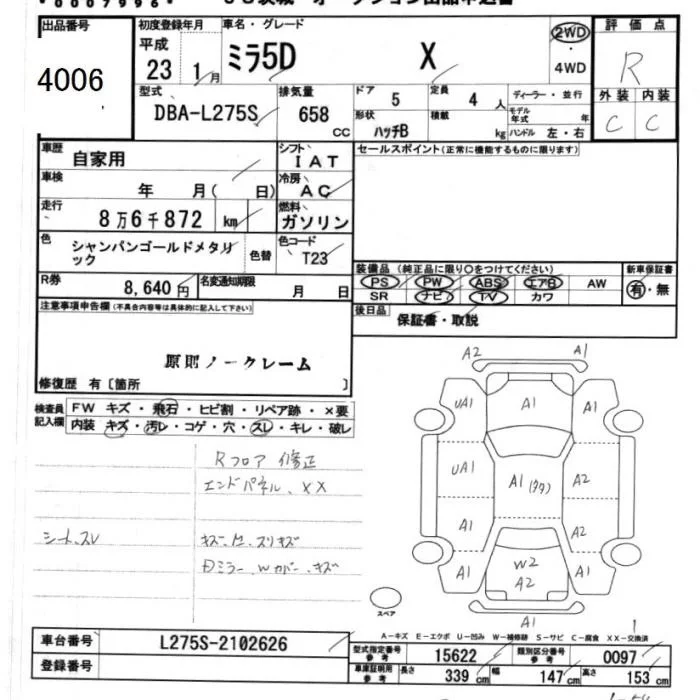 出品番号
4006
初度登録年月
平成
23 1月
車名・グレード
ミラ5D X
2WD
・
4WD
評価点
R
外装 内装
C C
型式
DBA-L275S
排気量
658
CC
ドア
5
定員
4 人
形状
ハッチB
積載
kg
ディーラー・並行
モデル年式 年
ハンドル 左・右
車歴
自家用
シフト
IAT
セールスポイント(正常に機能するものに限ります)
車検
年 月( 日)
冷房
AC
走行
8万6千872 km
燃料
ガソリン
色
シャンパンゴールドメタリック
色替
色コード
T23
R券
8,640円
名変通知期限
月 日
装備品 (純正品に限り〇をつけてください)
PS PW ABS エアB AW
SR ナビ TV カワ
新車保証書
有・無
後日品
保証書・取説
注意事項申告欄(不具合内容等は具体的に記入して下さい)
原則ノークレーム
修復歴 有〔箇所 〕
検査員記入欄
FW キズ・飛石・ヒビ割・リペア跡・×要
内装 キズ・汚レ・コゲ・穴・スレ・キレ・破レ
Rフロア 修正
エンドパネル、XX
シート、スレ
A2 A1
UA1 A1 A1
UA1 A1 A2
A1 A2
A1 W2 A2 A1
A1
スペア
A-キズ E-エクボ U-凹み W-補修跡 S-サビ C-腐食 XX-交換済
車台番号
L275S-2102626
登録番号
型式指定番号参考
15622
類別区分番号参考
0097
車庫証明用参考
長さ 339cm 幅 147cm 高さ 153cm